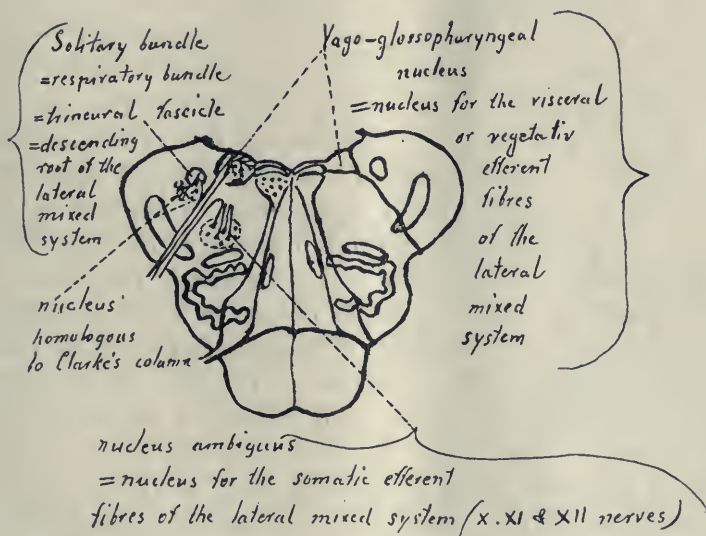 Solitary bundle
=respiratory bundle
=trineural fascicle
=descending
root of the
lateral
mixed
system
Vago-glossopharyngeal
nucleus
=nucleus for the visceral
or vegetativ
efferent
fibres
of the
lateral
mixed
system
nucleus
homologous
to Clarke's column
nucleus ambiguus
=nucleus for the somatic efferent
fibres of the lateral mixed system (X.XI & XII nerves)